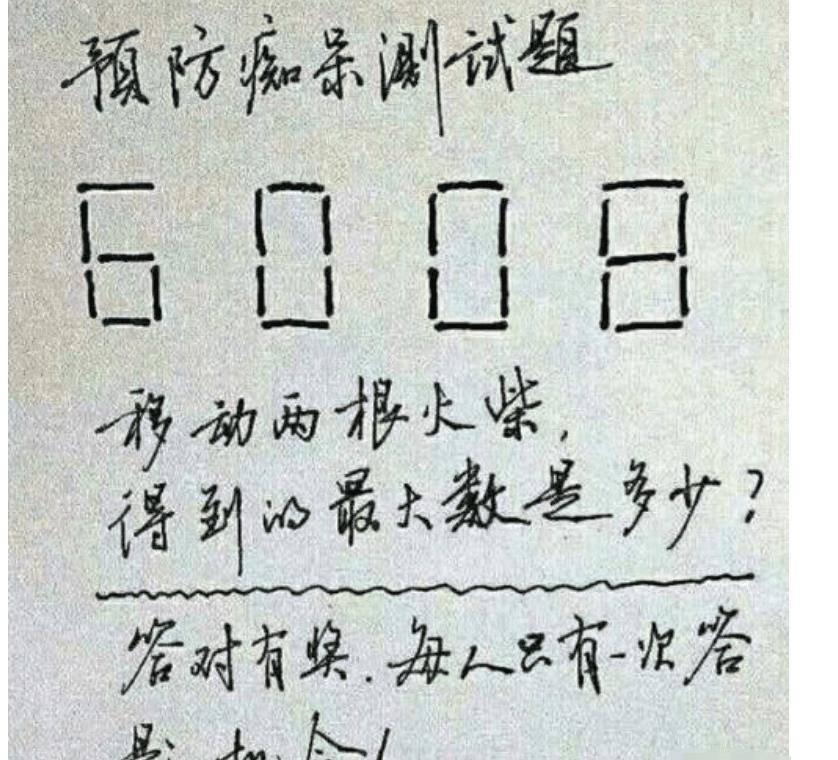 预防痴呆测试题
6008
移动两根火柴,
得到的最大数是多少?
答对有奖.每人只有一次答